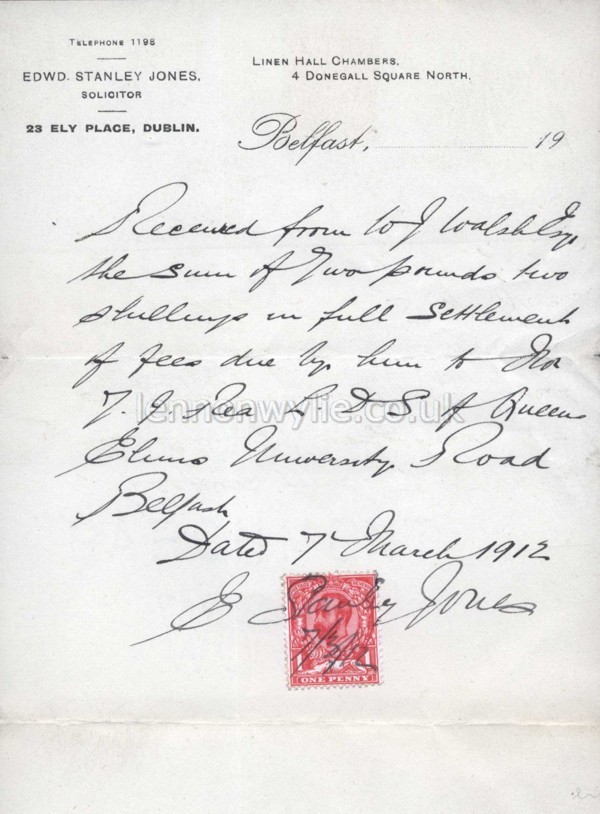 TELEPHONE 1198
EDWD. STANLEY JONES,
SOLICITOR
23 ELY PLACE, DUBLIN.
LINEN HALL CHAMBERS,
4 DONEGALL SQUARE NORTH,
Belfast, 19
Received from W J Walsh Esq
the sum of Two pounds two
shillings in full settlement
of fees due by him to
T. J Rea L. D S of Queens
lennonwylie.co.uk
Elms University Road
Belfast
Dated 7 March 1912
E Stanley Jones
7/3/12
ONE PENNY